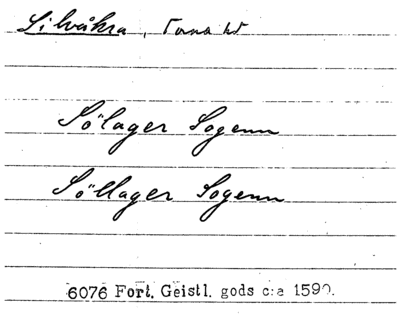 Silvåkra, Torna hd
Sölager Sogenn
Söllager Sogenn
6076 Fort. Geistl. gods c:a 1590.